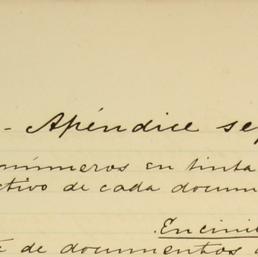 - Apéndice se
números en tinta
ctivo de cada docum
Encini
de documentos